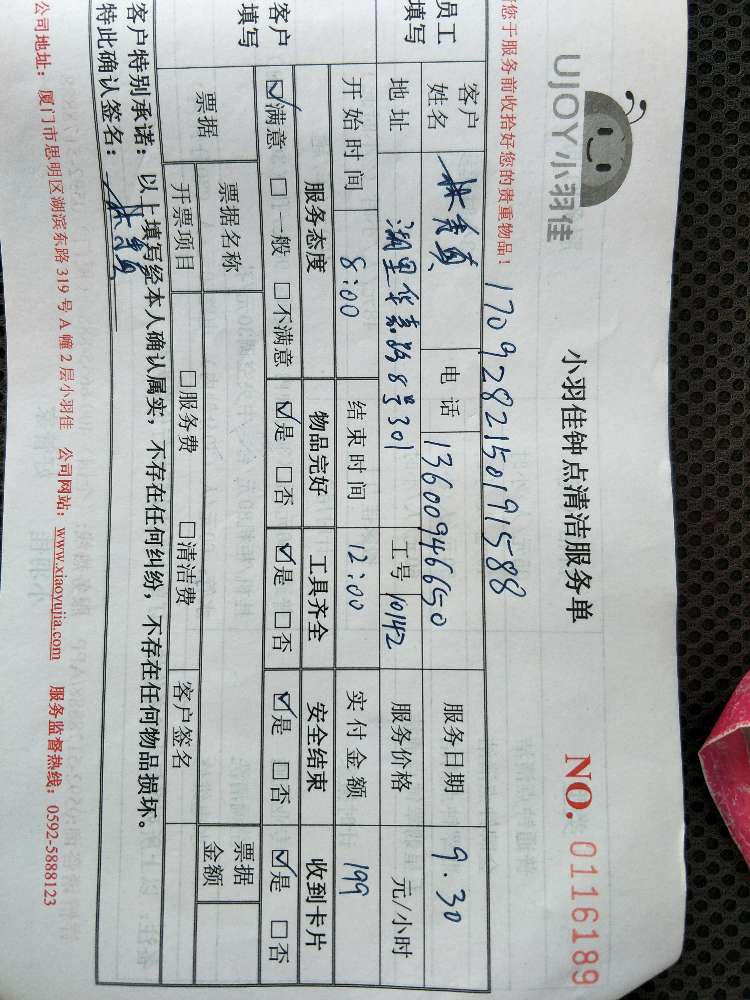 UJOY小羽佳
小羽佳钟点清洁服务单
NO. 0116189
您于服务前收拾好您的贵重物品！
1709282150191588
员工填写
客户姓名
电话 13600946650
服务日期 9.30
地址 湖里华泰路8号301
工号 10142
服务价格 元/小时
开始时间 8:00
结束时间 12:00
实付金额 199
客户填写
服务态度 物品完好 工具齐全 安全结束 收到卡片
☑满意 □一般 □不满意 ☑是 □否 ☑是 □否 ☑是 □否 ☑是 □否
票据 票据名称 票据金额
开票项目 □服务费 □清洁费 客户签名
客户特别承诺：以上填写经本人确认属实，不存在任何纠纷，不存在任何物品损坏。
特此确认签名：
公司地址：厦门市思明区湖滨东路 319 号 A 幢 2 层小羽佳 公司网站：www.xiaoyujia.com 服务监督热线：0592-5888123